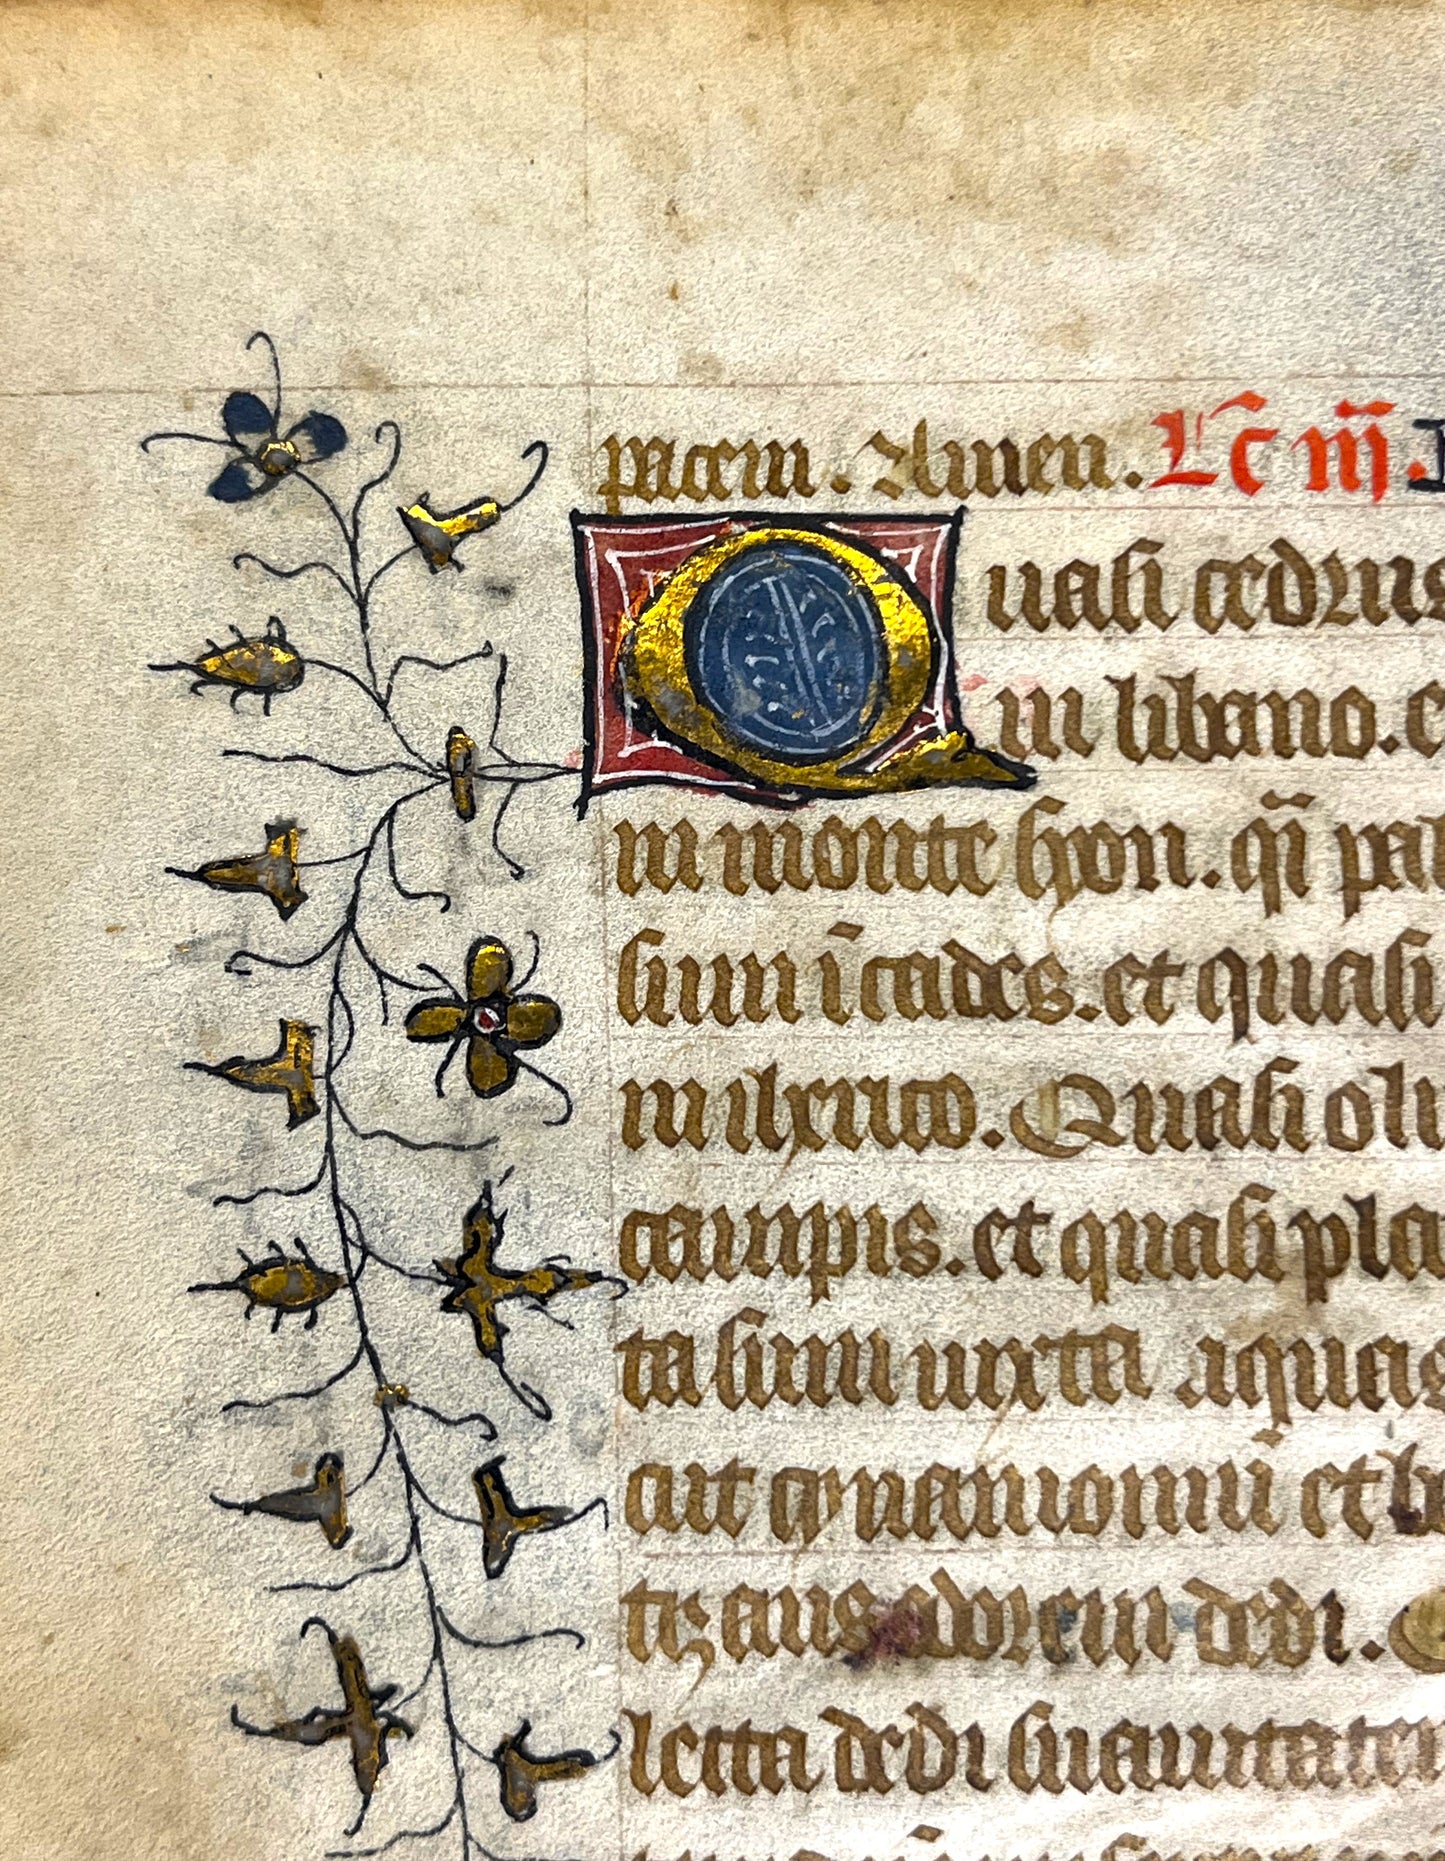 pacem. Amen. Lc̄ iij̄.
Quasi cedrus
in libano. c
in monte syon. qͥ pal
sum ī cades. et quasi
in iherico. Quasi oli
campis. et quasi pla
ta sum iuxta aquas
cut cynamomū et b
tizans odorem dedi.
lecta dedi suauitatem